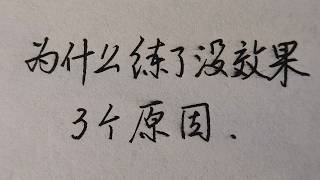 为什么练了没效果
3个原因.